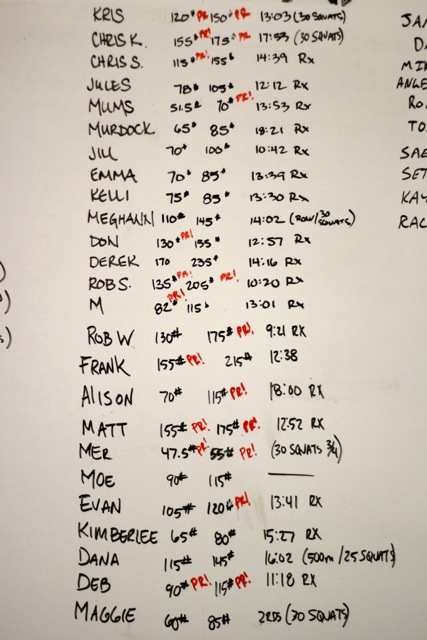 KRIS 120# PR! 150# PR 13:03 (30 SQUATS)
CHRIS K. 155# PR! 175# PR 17:53 (30 SQUATS)
CHRIS S. 115# PR! 155# 14:39 Rx
JULES 78# 105# 12:12 Rx
MUMS 51.5# 70# PR! 13:53 Rx
MURDOCK 65# 85# 18:21 Rx
JILL 70# 100# 10:42 Rx
EMMA 70# 85# 13:39 Rx
KELLI 75# 85# 13:30 Rx
MEGHANN 110# 145# 14:02 (ROW/30 SQUATS)
DON 130# PR! 155# 12:57 Rx
DEREK 170 235# 14:16 Rx
ROB S. 135# PR! 205# PR! 10:20 Rx
M 82# PR! 115# 13:01 Rx
ROB W. 130# 175# PR! 9:21 RX
FRANK 155# PR! 215# 12:38
ALISON 70# 115# PR! 18:00 RX
MATT 155# PR! 175# PR! 12:52 RX
MER 47.5# PR! 55# PR! (30 SQUATS 3/4)
MOE 90# 115# —
EVAN 105# 120# PR! 13:41 RX
KIMBERLEE 65# 80# 15:27 RX
DANA 115# 145# 16:02 (500m/25 SQUATS)
DEB 90# PR! 115# PR! 11:18 RX
MAGGIE 60# 85# (30 SQUATS)
JAN
MI
ANGE
RO
TO
SAE
SET
KAY
RAC